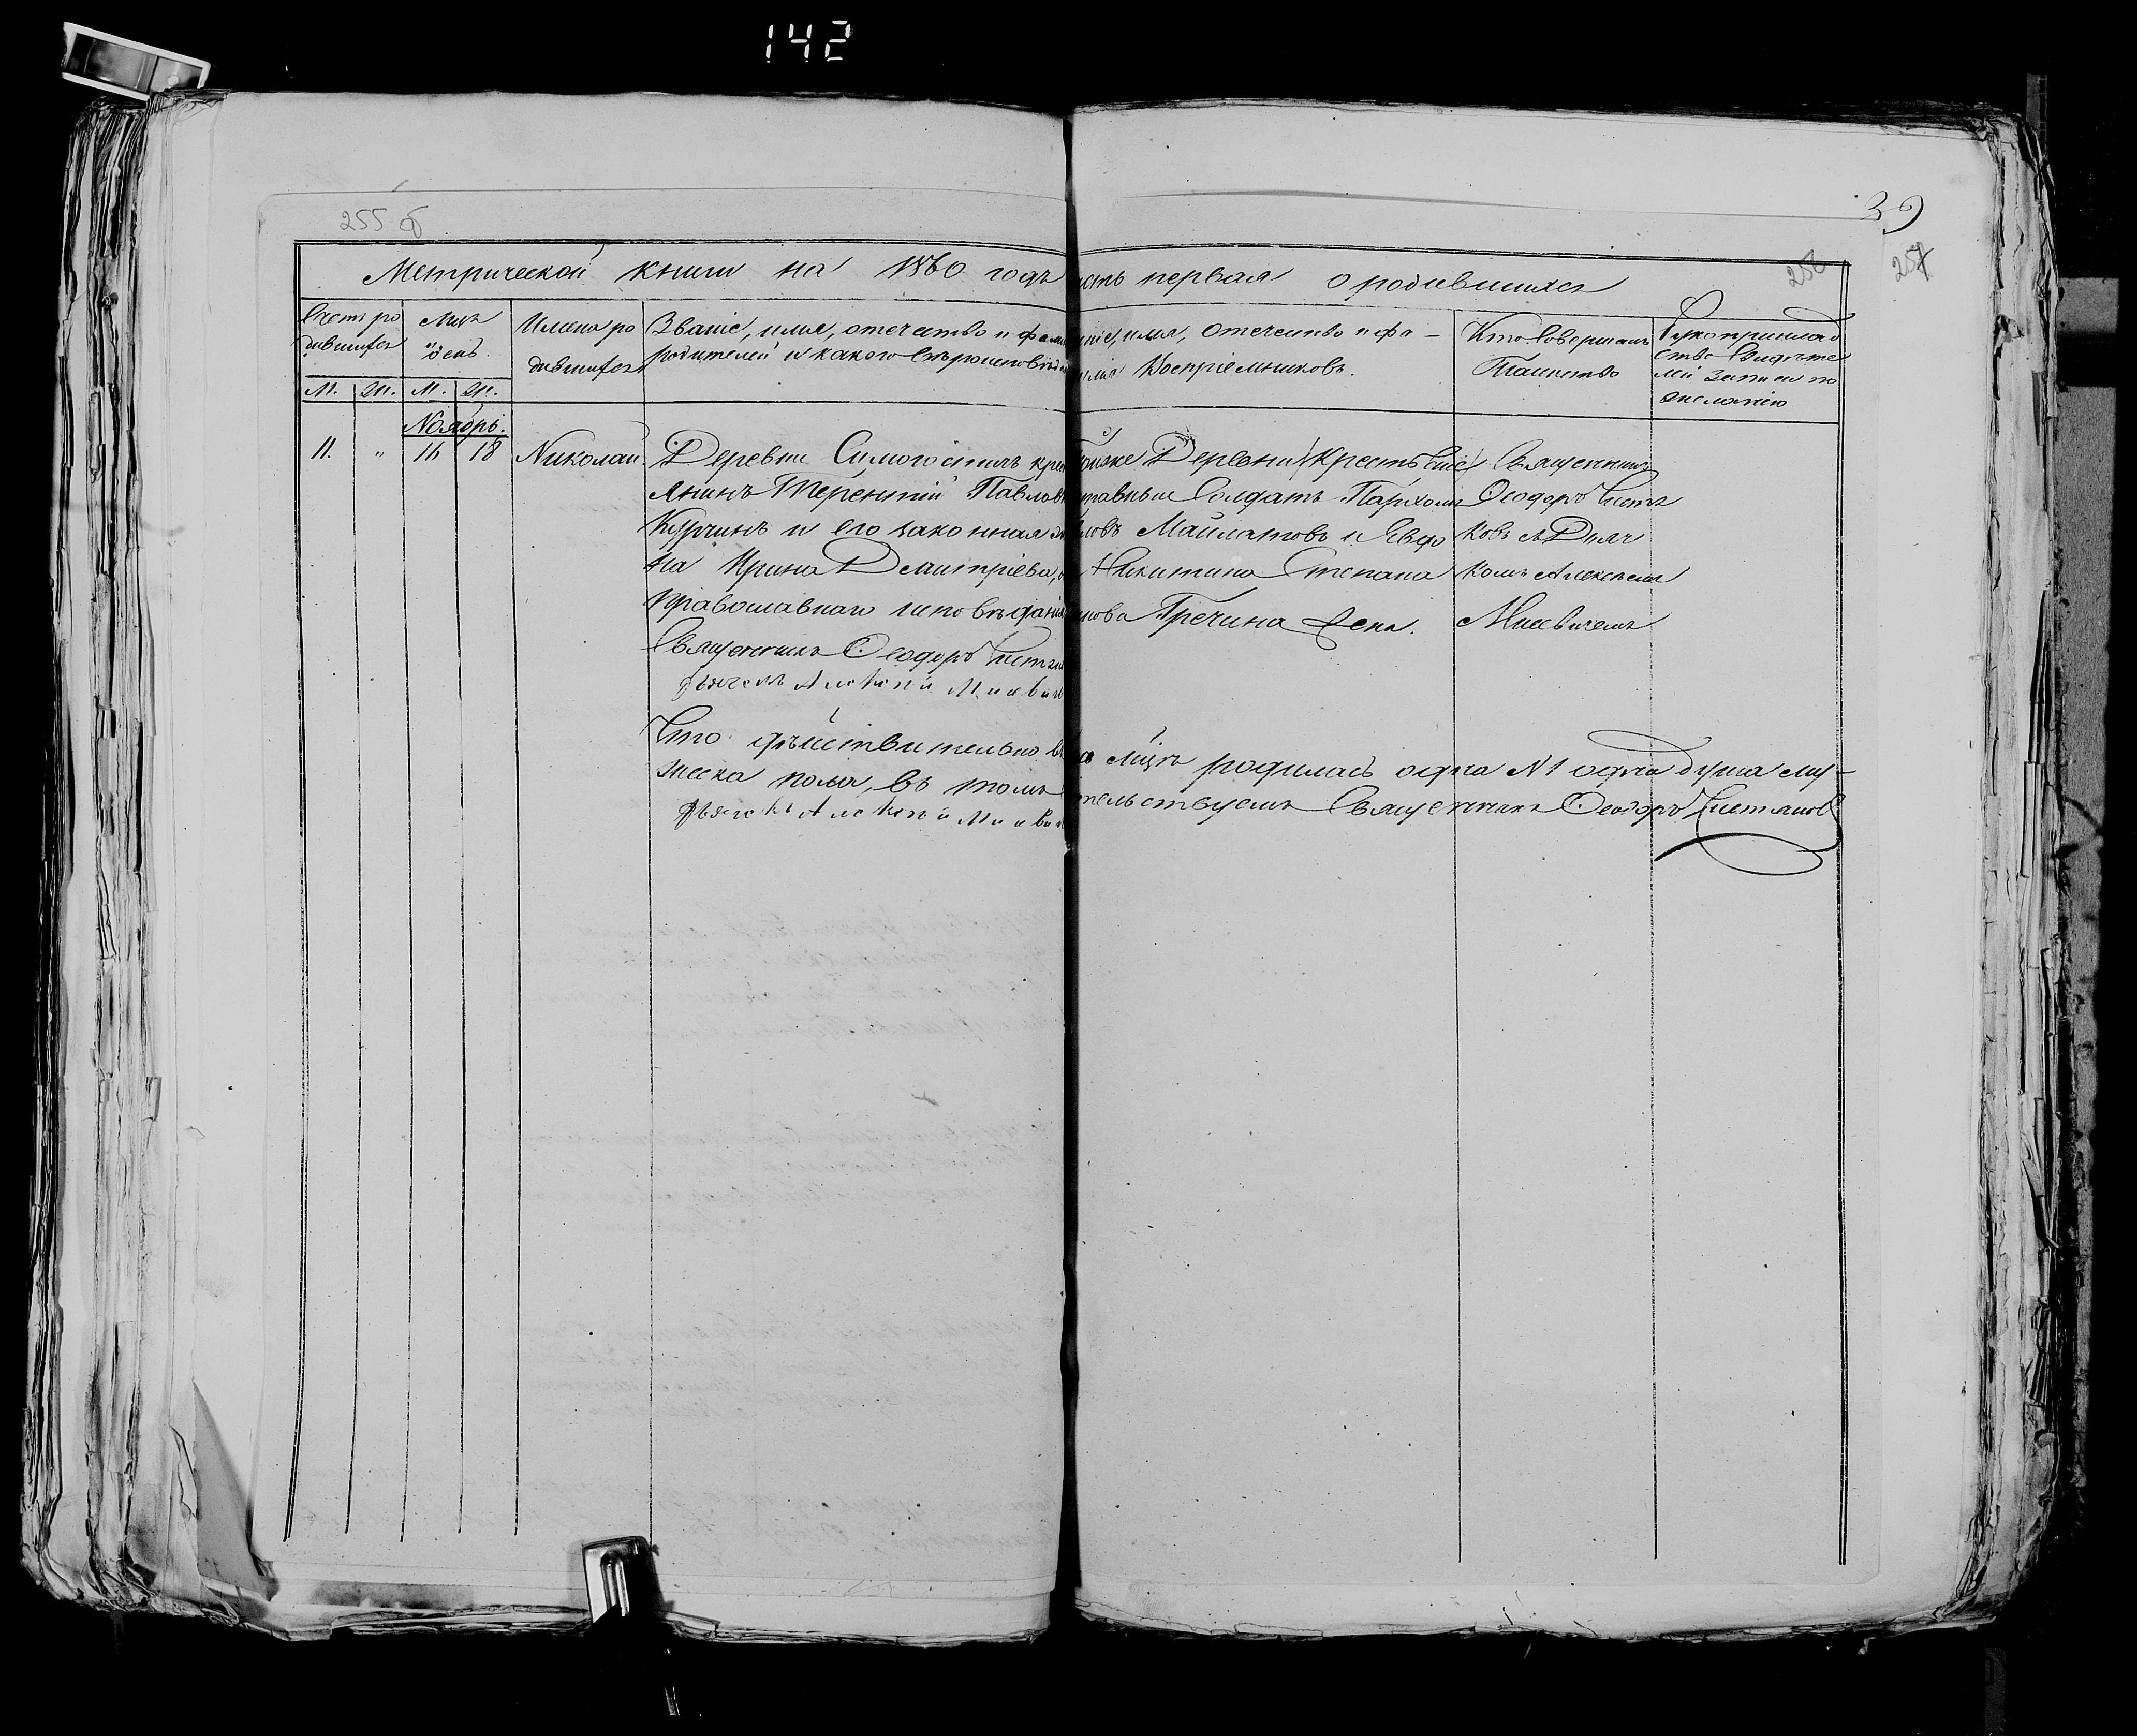 142
255 об
39
256
257
Метрической книги на 1860 годъ
сть первая о родившихся
Счетъ ро
дившихся
М. Ж.
Мцъ
и день.
М. Ж.
Имена ро
дившихся
Званіе, имя, отечество и фами
родителей и какого вѣроисповѣда
ніе, имя, отечество и фа-
милія Воспріемниковъ.
Кто Совершалъ
Таинство
Рукоприклад
ство Свидѣте
лей записи по
желанію
Ноябрь.
11. " 16 18 Николай
Деревни Симогостичъ кре
янинъ Терентій Павловъ
Курчинъ и его законная же
на Ирина Дмитріева, о
православнаго исповѣданія
Священникъ Ѳеодоръ Чистя
дьячекъ Алексѣй Мицевичъ
Тойже Деревни Крестьяне
ставный Солдатъ Пархомъ
ловъ Майматовъ и Евдо
Никитина Степана
нова Гречина жена.
Священникъ
Ѳеодоръ Чистя
ковъ съ Дьяч
комъ Алексѣемъ
Мицевичемъ
Что дѣйствительно въ
а мцѣ родилась одна № 1 одна душа му-
жеска пола, въ томъ
тельствуемъ Священникъ Ѳеодоръ Чистяковъ
Дьячекъ Алексѣй Мицевичъ